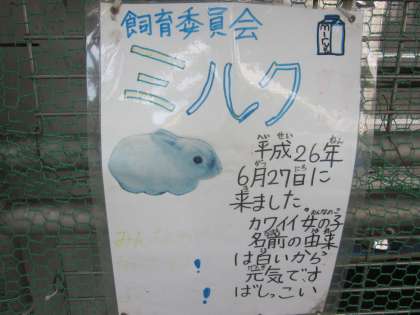 飼育委員会
ミルク
milk
平成26年
6月27日に
来ました。
カワイイ女の子
名前の由来
は白いから
元気です
ばしっこい
みん
!
!